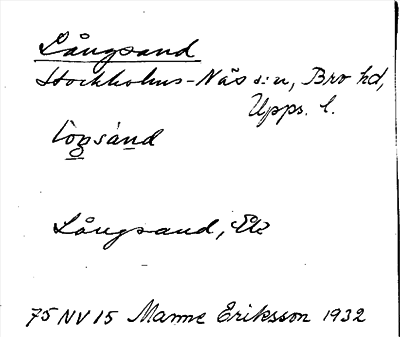 Långsand
Stockholms-Näs s:n, Bro hd,
Upps. l.
loŋsánd
Långsand, Ek
75 NV 15 Manne Eriksson 1932